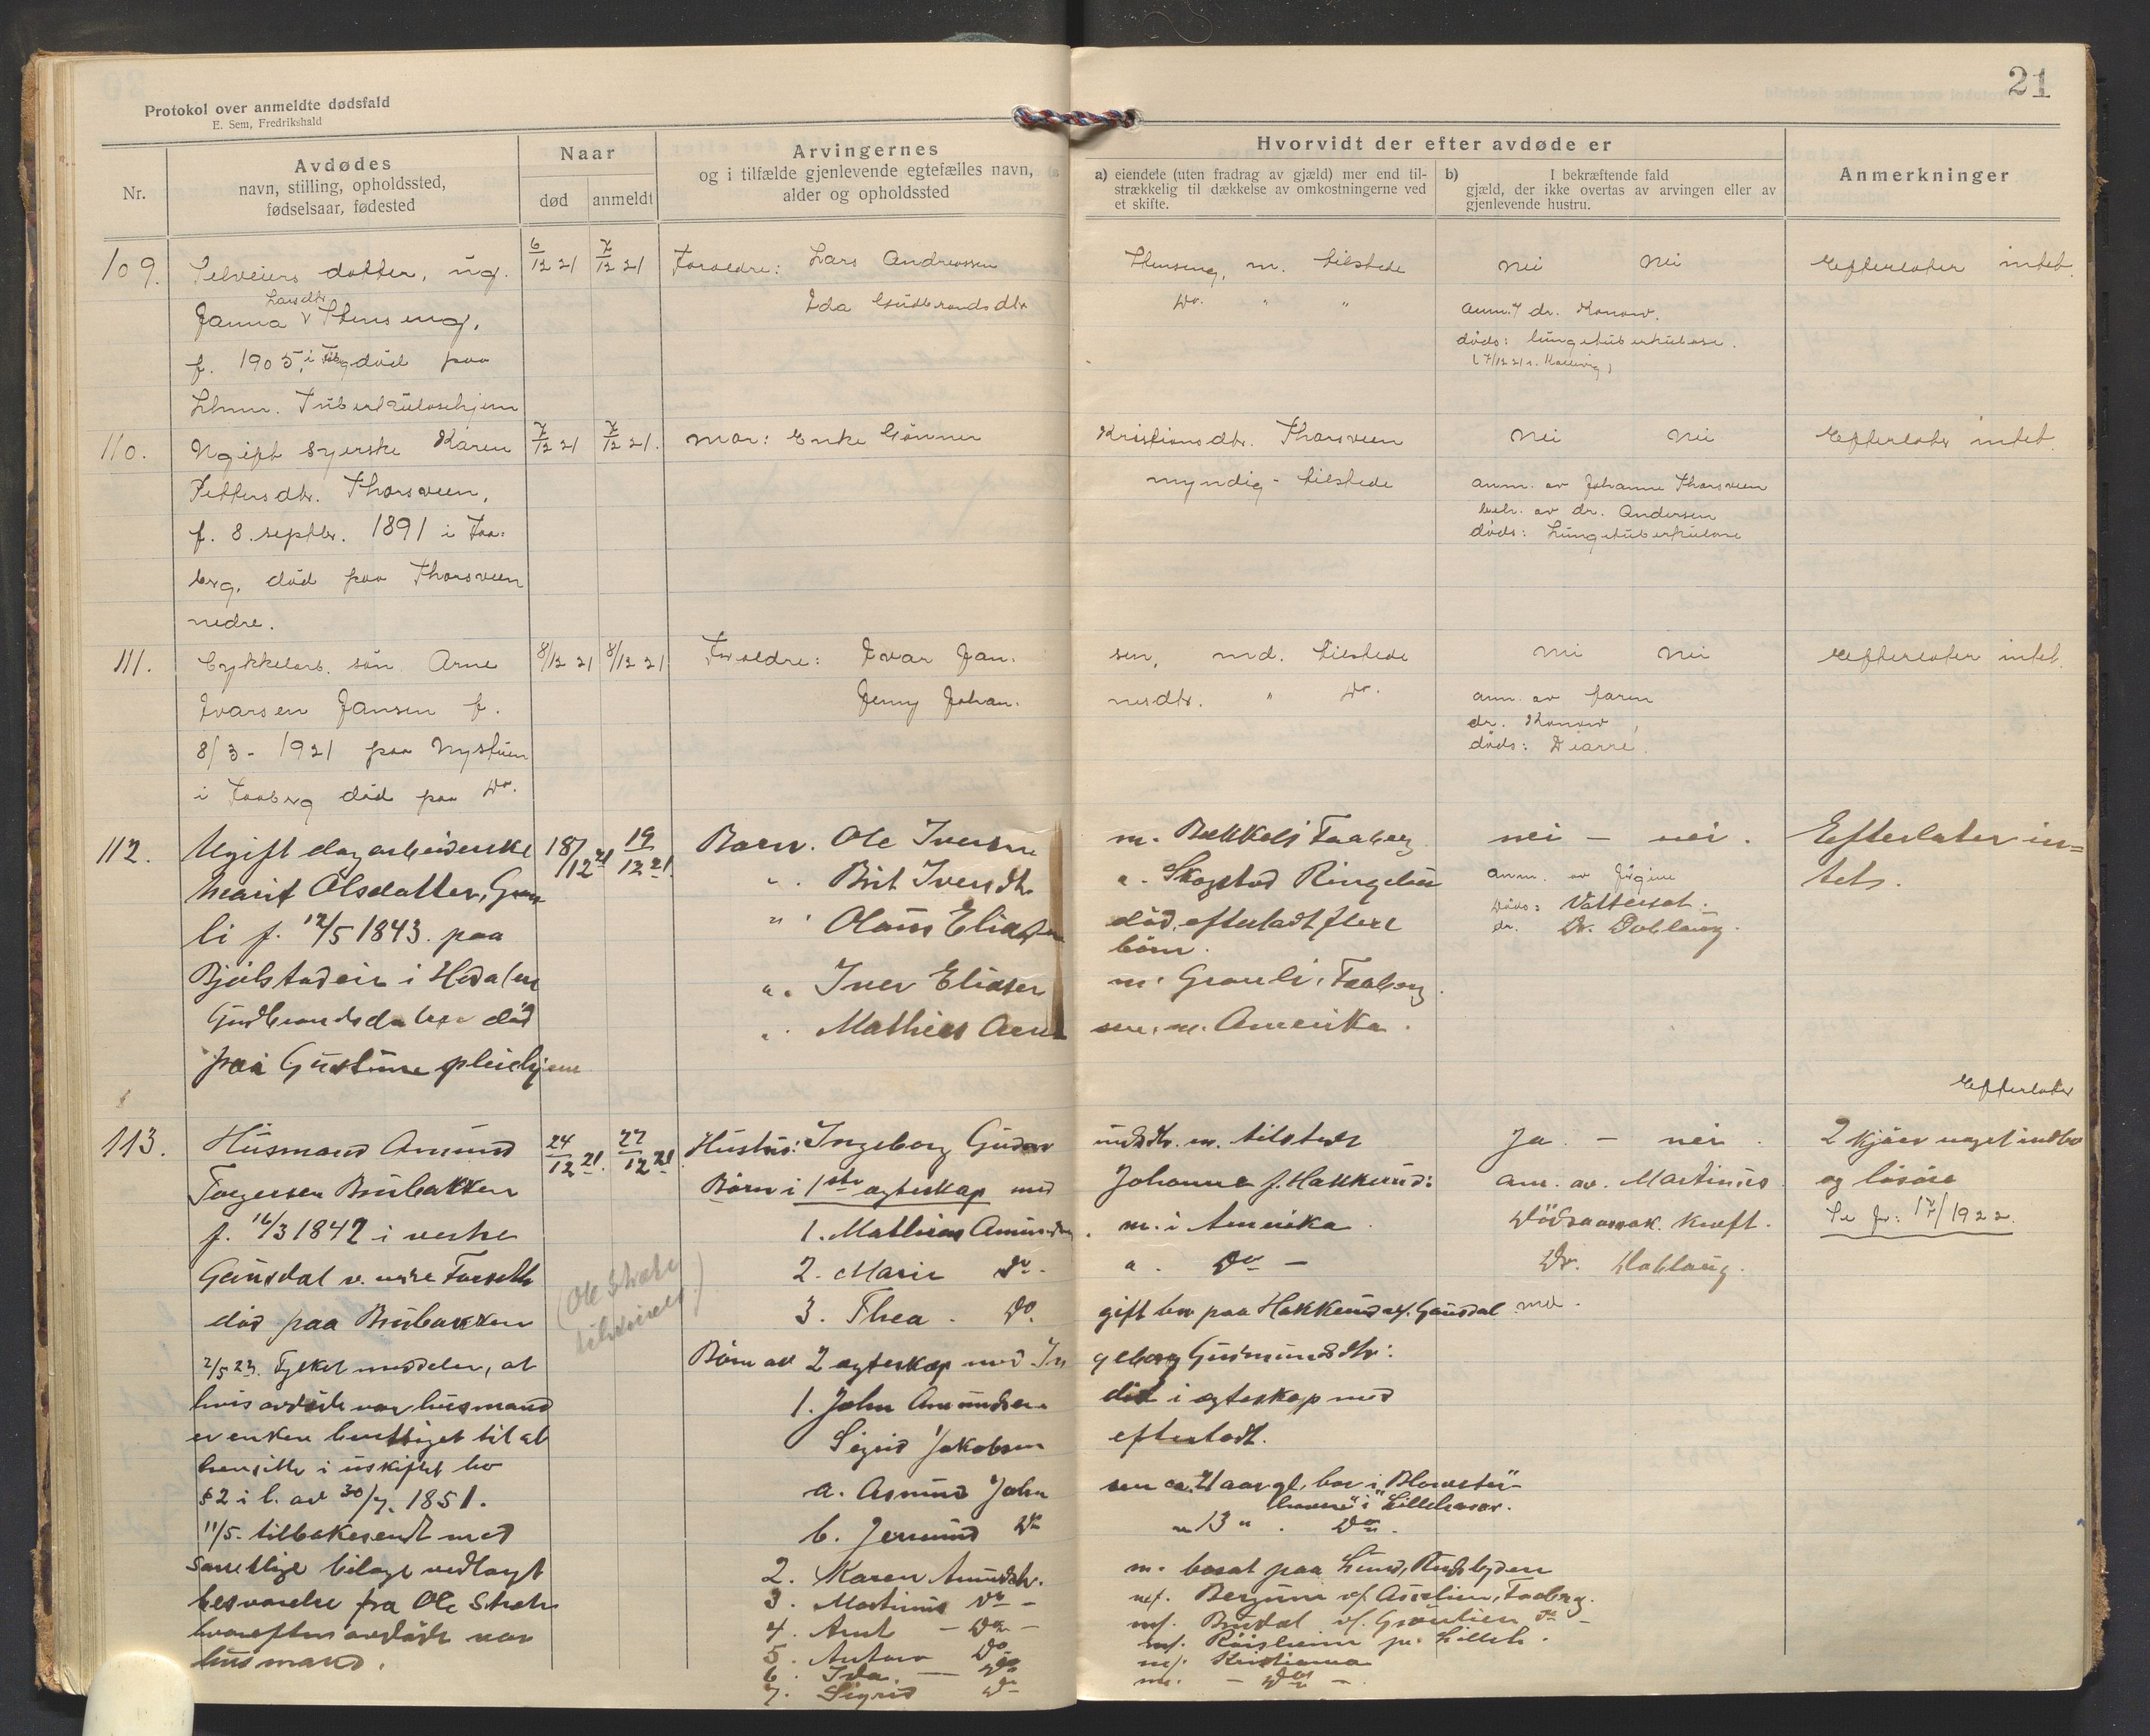 21
Protokol over anmeldte dødsfald
E. Sem, Fredrikshald
Nr.
Avdødes
navn, stilling, opholdssted,
fødselsaar, fødested
Naar
død
anmeldt
Arvingernes
og i tilfælde gjenlevende egtefælles navn,
alder og opholdssted
Hvorvidt der efter avdøde er
a) eiendele (uten fradrag av gjæld) mer end til-
strækkelig til dækkelse av omkostningerne ved
et skifte.
b) I bekræftende fald
gjæld, der ikke overtas av arvingen eller av
gjenlevende hustru.
Anmerkninger
109. Selveiers datter, ug. 6/12 21 7/12 21 Foreldre: Lars Andreassen Stenseng, m. tilstede nei nei Efterlater intet.
Larsdtr.
Janna Stenseng, Ida Gudbrandsdtr Do. " " anm. dr. Konow.
f. 1905, i død paa døds: lungetuberkulose.
Lhmr. Tuberkulosehjem
110. Ugift syerske Karen 7/12 21 7/12 21. Mor: Enke Gunner Kristiansdtr. Thorsveen Nei Nei Efterlater intet.
Pettersdtr. Thorsveen, myndig - tilstede anm. av Johanne Thorsveen
f. 8. septbr. 1891 i Faa: beh. av dr. Andersen
berg, død paa Thorsveen døds: Lungetuberkulose
nedre.
111. Cykkelarb. søn Arne 8/12 21 8/12 21 Foreldre: Ivar Jan: sen, md. tilstede nei nei Efterlater intet.
Ivarsen Jansen f. Jenny Johan: nesdtr. " Do. anm. av faren
8/3 - 1921 paa Nystuen dr. Konow,
i Faaberg død paa Do. døds: Diarre.
112. Ugift dagarbeiderske 18/12 21 19/12 21. Barn. Ole Iversen m. Bækkeli Faaberg nei - nei. Efterlater in=
Marit Olsdatter, Gran ". Brit Iversdtr. ". Skogstad Ringebu anm. av Jørgine tet.
li f. 12/5 1843. paa ". Olaus Eliassen død, efterladt flere døds: Vattersot.
børn. dr. Dr. Doblaug.
Bjølstadeie i Hedalen ". Iver Eliasen m. Granli, Faaberg.
Gudbrandsdalen død ". Mathias Arne sen. m. Amerika.
paa Gustune pleiehjem
Efterlater
113. Husmand Amund 24/12 21. 27/12 21. Hustru: Ingeborg Gudm undsdtr. m. tilstede Ja. - nei. 2 kjøer noget indbo
Torgersen Brubakken Børn i 1ste egteskap med Johanne f. Hakkerud: anm. av. Martinius. og løsøre
f. 16/3 1842 i vestre 1. Mathias Amundsen. m. i Amerika. Dødsaarsak. Kræft. Se jr: 17/1922.
Gausdal v. Forseth 2. Marie Do. ". Do - Dr. Doblaug.
død paa Brubakken 3. Thea. Do. gift bor paa Hakkerud Gausdal md.
(Ole Stræte
2/5 23. Fylket meddeler, at Børn av 2 egteskap med In geborg Gudmundsdtr:
hvis avdøde var husmand 1. John Amundsen død i egteskap med
er enken berettiget til at Sigrid Jakobsen efterladt.
hensitte i uskiftet bo
§ 2 i l. av 30/7. 1851. a. Asmund John sen ca. 21 aar gl. bor i "Blomster-
havene" i Lillehammer.
11/5. tilbakesendt med b. Jermund Do " 13 " . Do.
samtlige bilage vedlagt 2. Karen Amundsdtr. m. bosat paa Lund, Rudsbygden
besvarelse fra Ole Stræte 3. Martinius Do - m/. Bergum v/. Faaberg.
hvorefter avdøde var 4. Arnt - Do - m/. Brudal v/. Do -
husmand. 5. Anton Do m/. Røisheim pr. Lilleh.
6. Ida. - Do m/. Kristiania
7. Sigrid Do m. - Do -